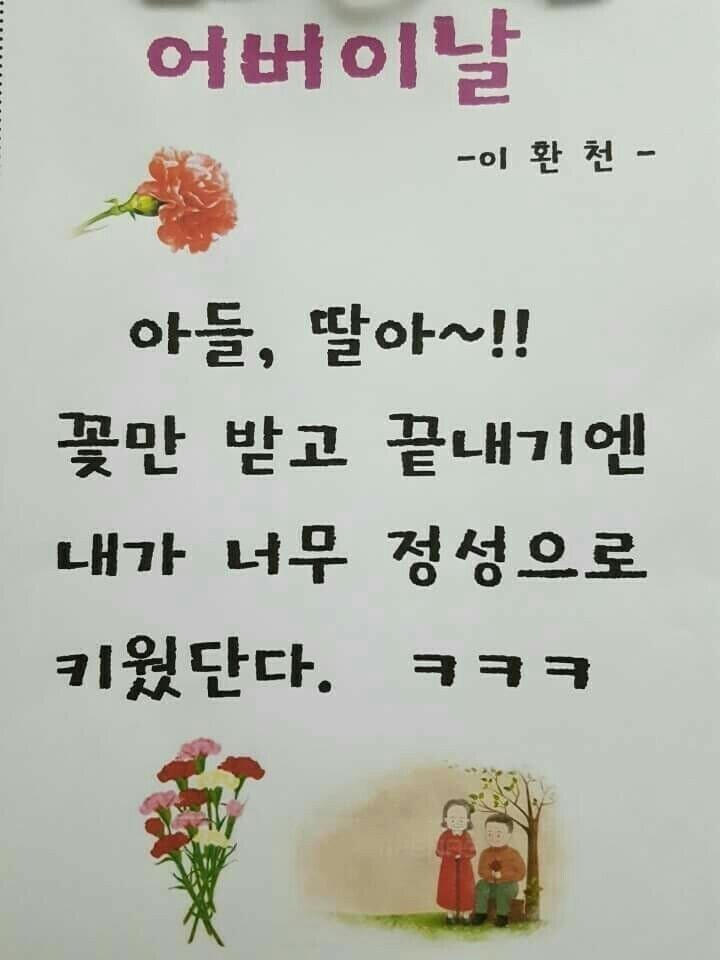 어버이날
-이 환 천 -
아들, 딸아~!!
꽃만 받고 끝내기엔
내가 너무 정성으로
키웠단다. ㅋㅋㅋ